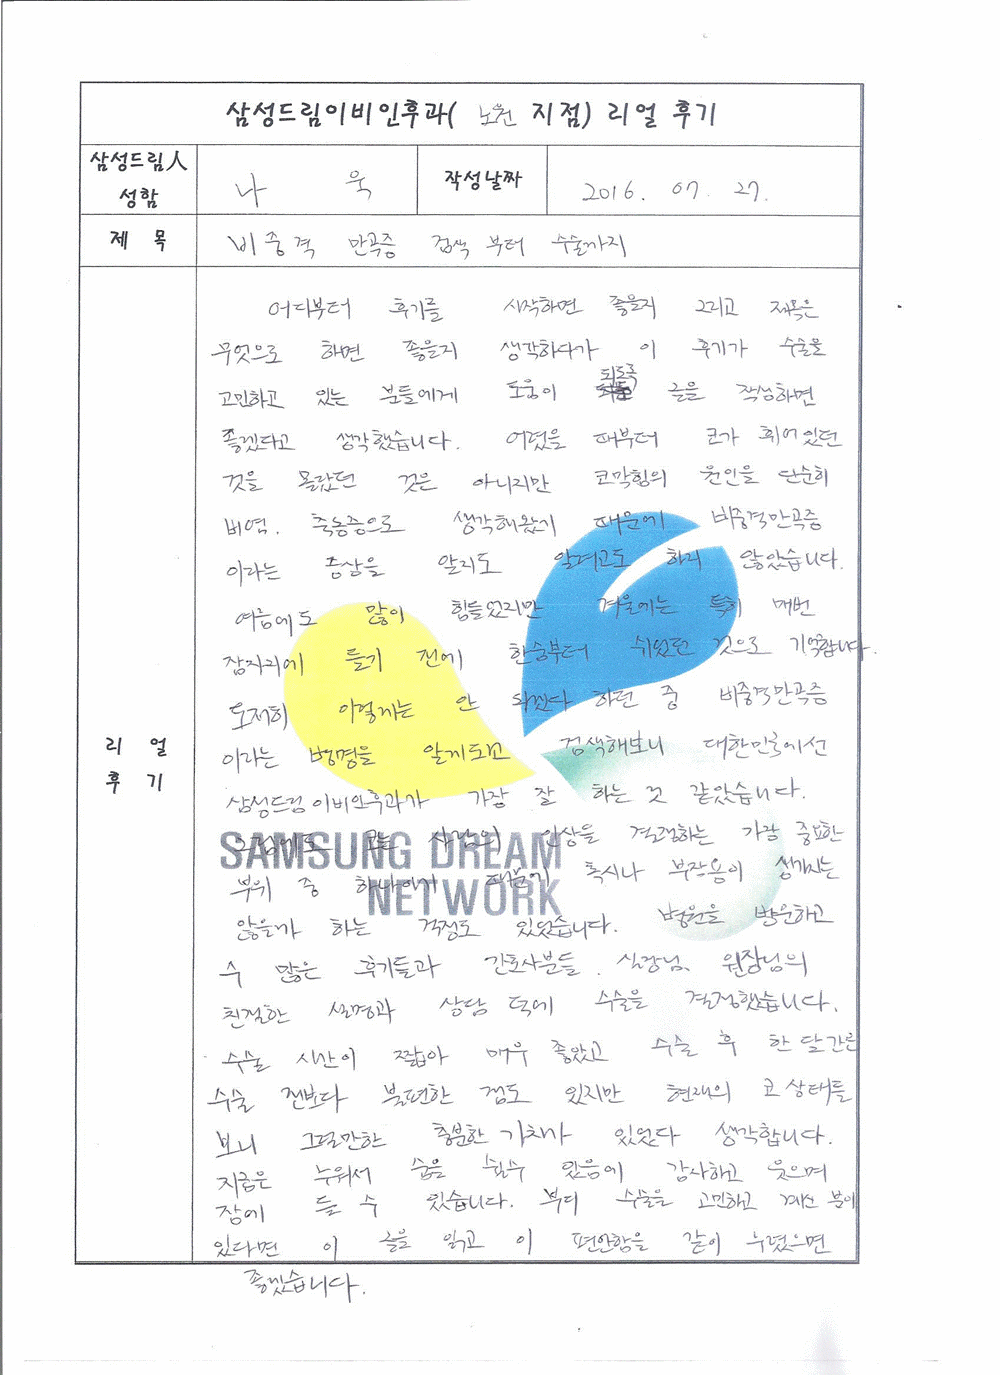 삼성드림이비인후과( 노원 지점) 리얼 후기
삼성드림人 성함
나 욱
작성날짜
2016. 07. 27.
제 목
비중격 만곡증 검색 부터 수술까지
리 얼 후 기
어디부터 후기를 시작하면 좋을지 그리고 제목은
무엇으로 하면 좋을지 생각하다가 이 후기가 수술을
고민하고 있는 분들에게 도움이 되도록 글을 작성하면
좋겠다고 생각했습니다. 어렸을 때부터 코가 휘어있던
것을 몰랐던 것은 아니지만 코막힘의 원인을 단순히
비염. 축농증으로 생각해왔기 때문에 비중격만곡증
이라는 증상을 알지도 알려고도 하지 않았습니다.
여름에도 많이 힘들었지만 겨울에는 특히 매번
잠자리에 들기 전에 한숨부터 쉬었던 것으로 기억합니다.
도저히 이렇게는 안 되겠다 하던 중 비중격만곡증
이라는 병명을 알게되고 검색해보니 대한민국에선
삼성드림이비인후과가 가장 잘 하는 것 같았습니다.
그럼에도 코는 사람의 인상을 결정하는 가장 중요한
부위 중 하나이기 때문에 혹시나 부작용이 생기지는
않을까 하는 걱정도 있었습니다. 병원을 방문하고
수 많은 후기들과 간호사분들. 실장님. 원장님의
친절한 설명과 상담 덕에 수술을 결정했습니다.
수술 시간이 짧아 매우 좋았고 수술 후 한 달간은
수술 전보다 불편한 점도 있지만 현재의 코 상태를
보니 그럴만한 충분한 가치가 있었다 생각합니다.
지금은 누워서 숨을 쉴수 있음에 감사하고 웃으며
잠에 들 수 있습니다. 부디 수술을 고민하고 계신 분이
있다면 이 글을 읽고 이 편안함을 같이 누렸으면
좋겠습니다.
SAMSUNG DREAM
NETWORK